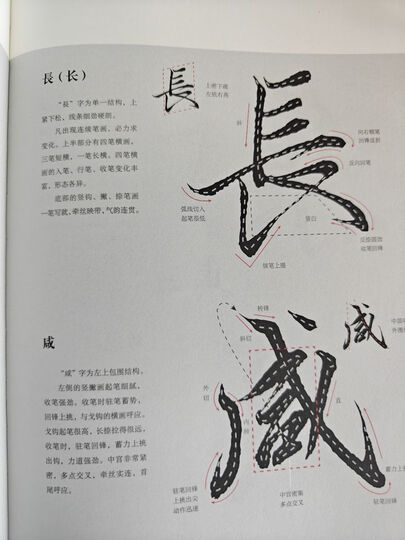 長（长）
“長”字为单一结构，上
紧下松，线条细劲硬朗。
凡出现连续笔画，必力求
变化，上半部分有四笔横画，
三笔短横，一笔长横，四笔横
画的入笔、行笔、收笔变化丰
富，形态各异。
底部的竖钩、撇、捺笔画
一笔写就，牵丝映带，气韵连贯。
長
上密下疏
左低右高
長
斜
向右顿笔
回锋
反向回笔
弧线切入
起笔很低
留白
反捺强劲
收笔回锋
驻笔上挑
咸
“咸”字为左上包围结构。
左侧的竖撇画起笔细腻，
收笔强劲。收笔时驻笔蓄势，
回锋上挑，与戈钩的横画呼应。
戈钩起笔很高，长捺拉得很远，
收笔时，驻笔回锋，蓄力上挑
出钩，力道强劲。中宫非常紧
密，多点交叉，牵丝实连，首
尾呼应。
咸
中宫
外围
咸
斜切
外
切
内
直
驻笔回锋
上挑出尖
动作迅速
中宫密集
多点交叉
蓄力上
驻笔回锋